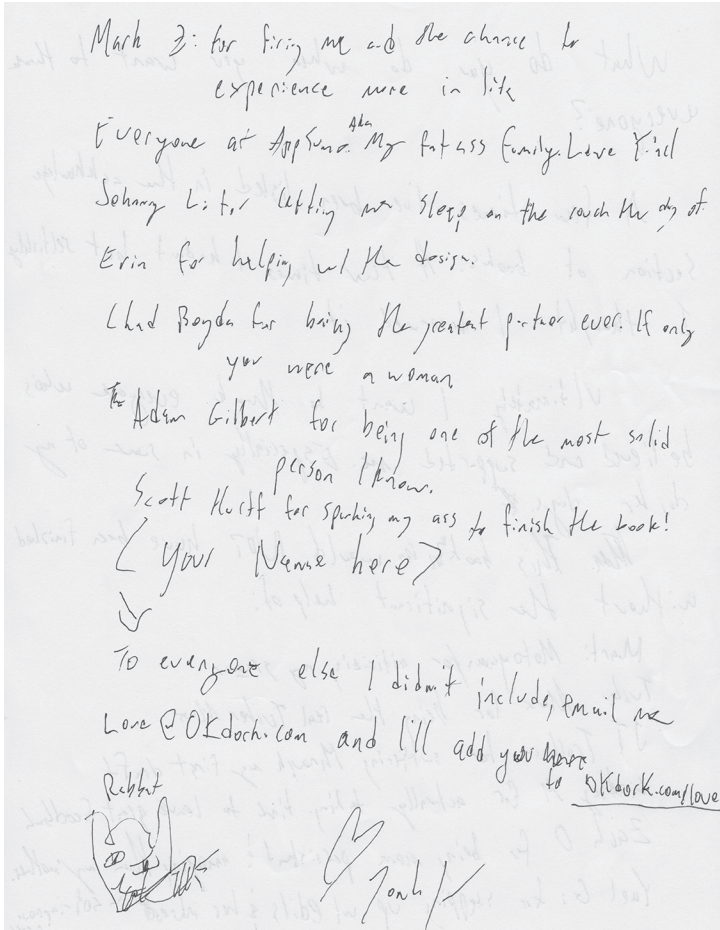 Mark Z: for firing me and the chance to
experience more in life
Everyone at AppSumo. Aka My fatass family. Love Y'all
Johnny Li for letting me sleep on the couch the day of.
Erin for helping w/ the design.
Chad Boyda for being the greatest partner ever. If only
you were a woman
The Adam Gilbert for being one of the most solid
person I know.
Scott Hurff for spanking my ass to finish the book!
< Your Name here >
To everyone else I didn't include, email me
Love@OKdork.com and I'll add you here
to OKdork.com/love
Rabbit
Noah K